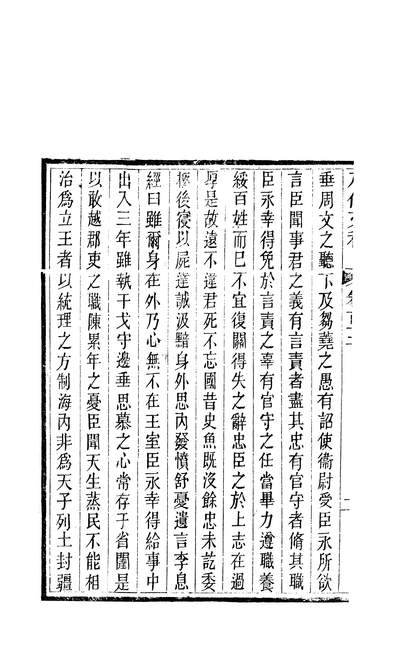 垂周文之聽下及芻蕘之愚有詔使衞尉受臣永所欲
言臣聞事君之義有言責者盡其忠有官守者脩其職
臣永幸得免於言責之辜有官守之任當畢力遵職養
綏百姓而已不宜復關得失之辭忠臣之於上志在過
厚是故遠不違君死不忘國昔史魚旣沒餘忠未訖委
柩後寑以屍達誠汲黯身外思內發憤舒憂遺言李息
經曰雖爾身在外乃心無不在王室臣永幸得給事中
出入三年雖執干戈守邊垂思慕之心常存于省闥是
以敢越郡吏之職陳累年之憂臣聞天生蒸民不能相
治爲立王者以統理之方制海內非爲天子列土封疆